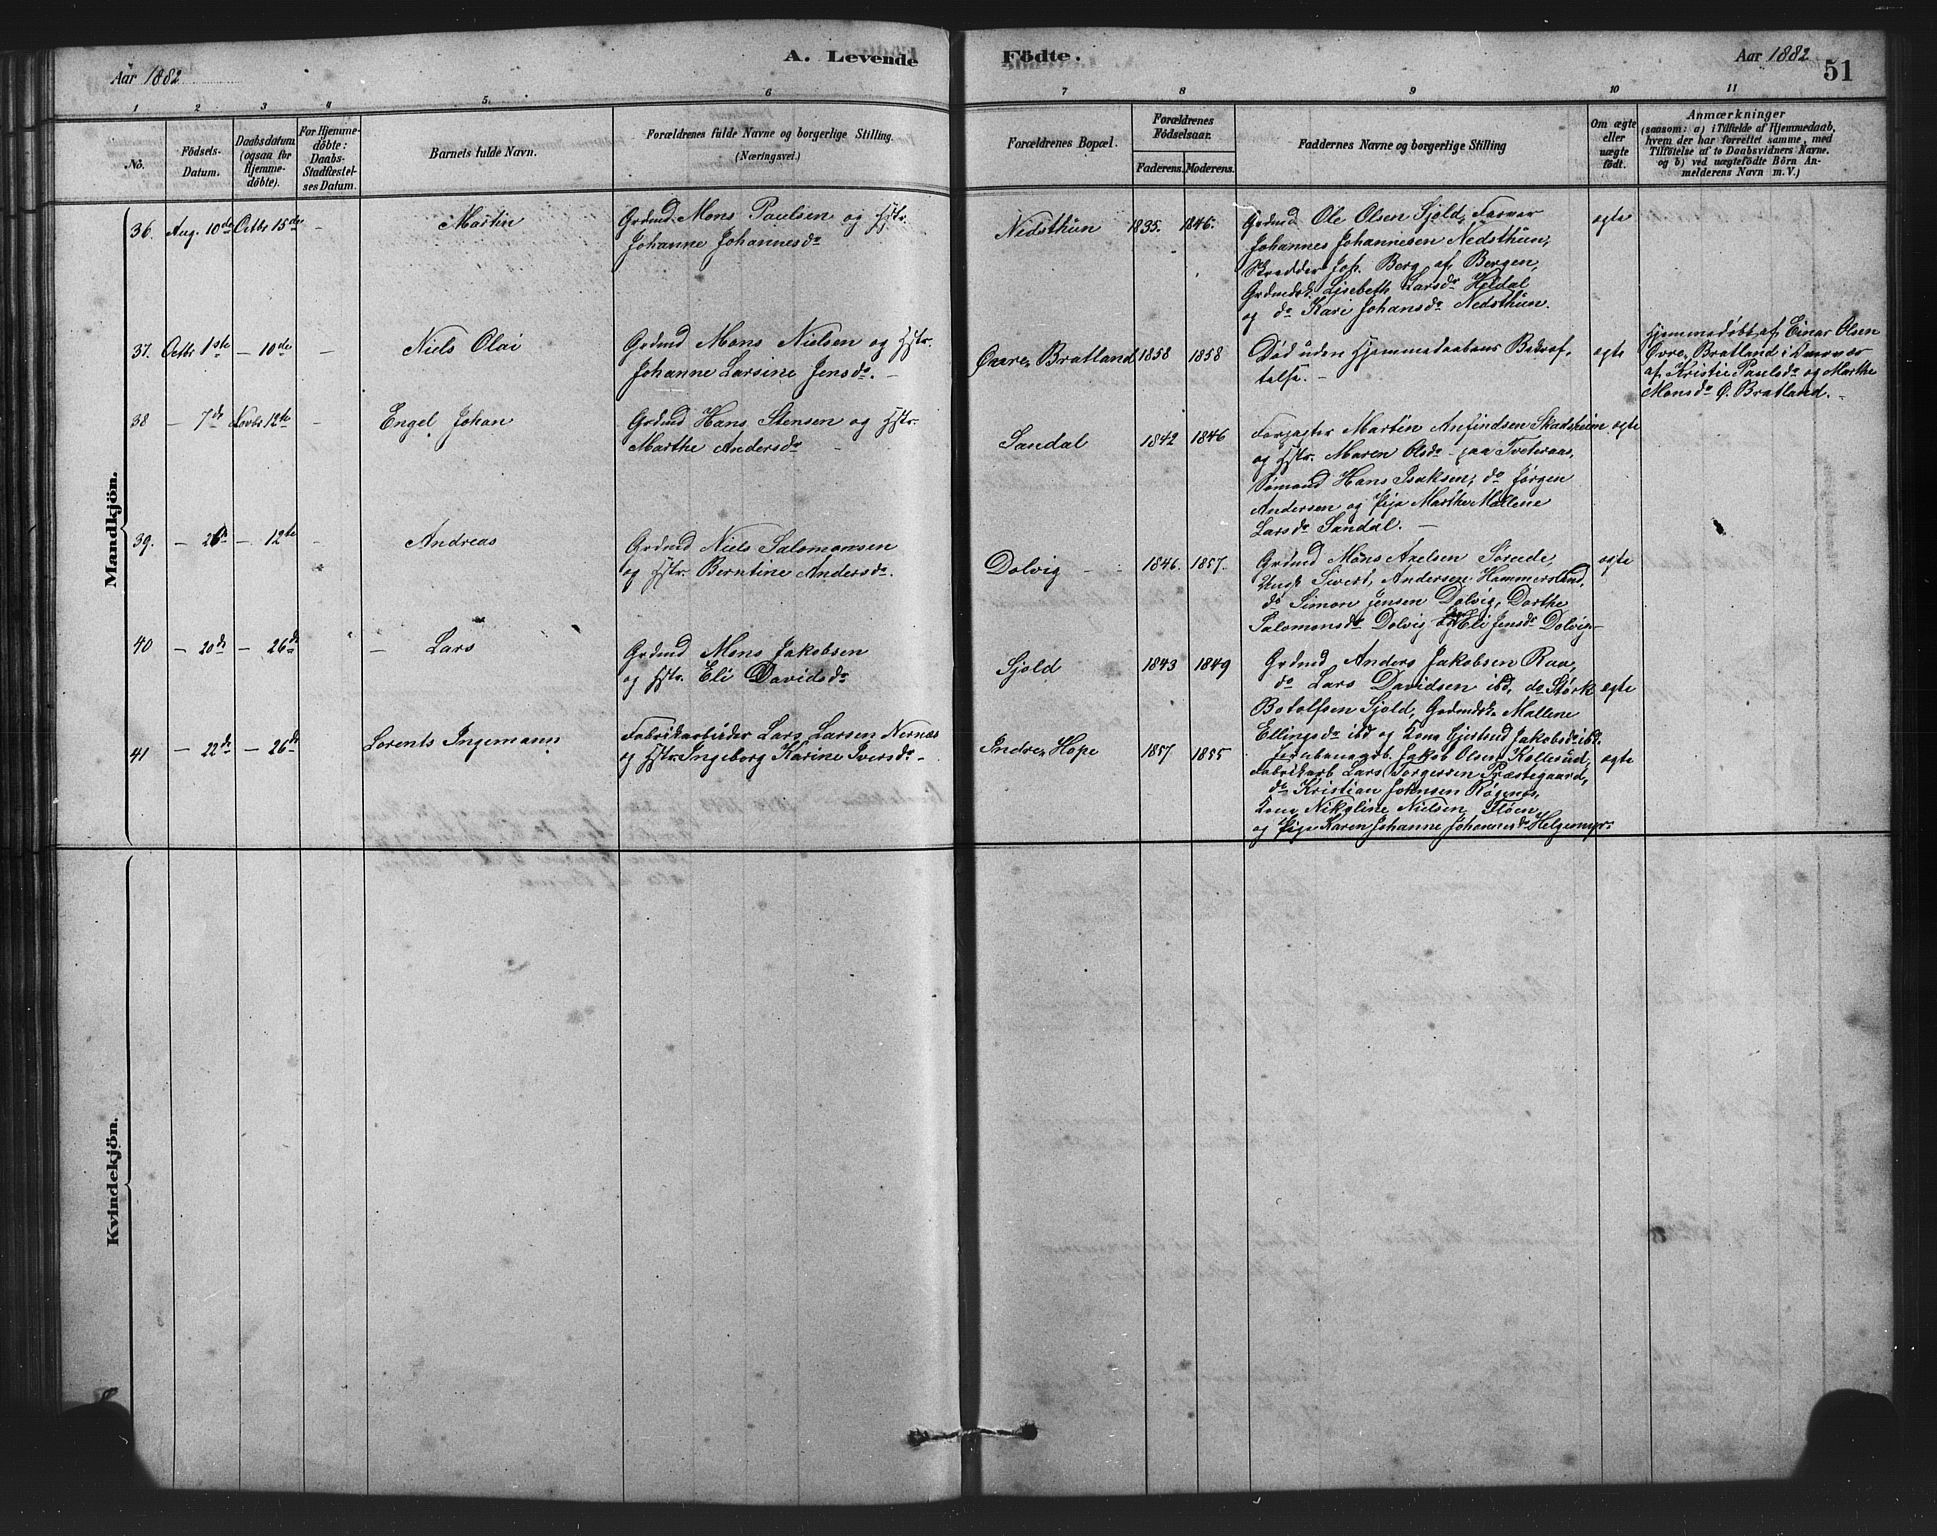 Aar 1882
A. Levende
Födte.
Aar 1882
51
1 2 3 4 5. 6 7 8 9 10 11
No.
Födsels-
Datum.
Daabsdatum
(ogsaa for
Hjemme-
döbte).
For Hjemme-
döbte:
Daabs-
Stadfæstel-
ses Datum.
Barnets fulde Navn.
Forældrenes fulde Navne og borgerlige Stilling.
(Næringsvei.)
Forældrenes Bopæl.
Forældrenes
Födselsaar.
Faderens. Moderens.
Faddernes Navne og borgerlige Stilling
Om ægte
eller
uægte
födt.
Anmærkninger
(saasom: a) i Tilfælde af Hjemmedaab,
hvem der har forrettet samme, med
Tilföielse af to Daabsvidners Navne.
og b) ved uægtefödte Börn An-
melderens Navn m. V.)
Mandkjön.
36. Aug. 10de Octbr 15de - Martin
Grdmd. Mons Paulsen og Hstr.
Johanne Johannesdr
Nedsthun 1835. 1846.
Grdmd Ole Olsen Sjold,
Johannes Johannesen Nedsthun,
Skrædder Joh. Berg af Bergen,
Grdmdsk. Lisebeth Larsdr Heldal
og do Kari Johansdr Nedsthun.
egte
37. Octbr 1ste - 10de - Niels Olai
Grdmd Mons Nielsen og Hstr.
Johanne Larsine Jensdr. -
Øvre Bratland 1858 1858
Død uden Hjemmedaabens Bekræf-
telse. -
egte
Hjemmedøbt af Einar Olsen
Øvre Bratland i Nærvær
af Kristie Paulsdr og Marthe
Monsdr Ø. Bratland. -
38 - 7de Novbr 12te - Engel Johan
Grdmd Hans Stensen og Hstr.
Marthe Andersdr -
Sandal 1842 1846
Forpagter Martin Anfindsen Skadsheim
og Hstr. Maren Olsdr - paa Tveteraas,
Sømand Hans Isaksen, do Jørgen
Andersen og Pige Marthe Mallene
Larsdr Sandal. -
egte
39. - - 12te - Andreas
Grdmd Niels Salomonsen
og Hstr. Berntine Andersdr.
Dolvig - 1846. 1857.
Grdmd Mons Axelsen Søreide,
Ungk Sivert Andersen Hammersland,
do Simon Jensen Dolvig, Dorthe
Salomonsdr Dolvig Eli Jensdr Dolvig -
egte
40 - 20de - 26de - Lars
Grdmd Mons Jakobsen
og Hstr. Eli Davidsdr
Sjold 1843 1849
Grdmd Anders Jakobsen Raa,
do Lars Davidsen ibd, do Størk
Botolfsen Sjold, Grdmdsk. Mallene
Ellingsdr ibd og Kona Gjertrud Jakobsdr ibd.
egte
41 - 22de - 26de Lorents Ingemann
Fabrikarbeider Lars Larsen Nernæs
og Hstr. Ingeborg Karine Iversdr -
Indre Hope 1857 1855
Jernbanearb. Jakob Olsen Kollerud,
Fabrikarb Lars Torgersen Præstegaard,
do Kristian Johnsen Røgenes,
Kona Nikoline Nielsen Fløen,
og Pige Karen Johanne Johannesdr Helgemyr.
egte
Kvindekjön.